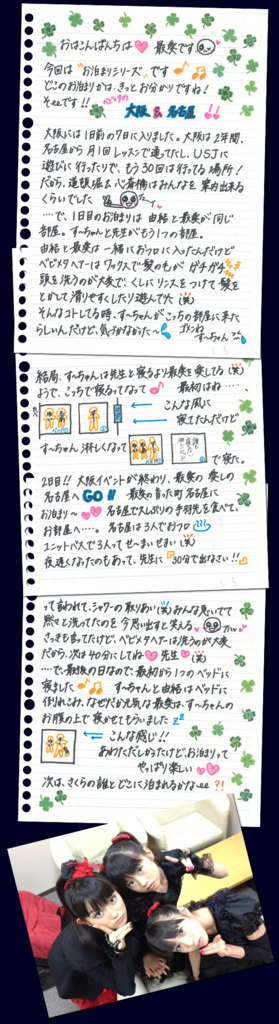 おはこんばんちは 最愛です
今回は"お泊まりシリーズ"です
どこのお泊まりかは、きっとお分かりですね!
そぉです!! ベビメタの 大阪&名古屋!!
大阪には1日前の7日に入りました。大阪は2年間、
名古屋から月1回レッスンで通ってたし、USJに
遊びに行ったりで、もう30回は行ってる場所!
だから、道頓堀&心斎橋はみんなを案内出来る
くらいでした
…で、1日目のお泊まりは由結と最愛が同じ
部屋。す〜ちゃんと先生がもう1つの部屋。
由結と最愛は一緒におフロに入ったんだけど
ベビメタヘアーはワックスで髪のもがガチガチ
頭を洗うのが大変で、くしにリンスをつけて髪を
とかして滑りやすくしたり遊んでた(笑)
そんなコトしてる時、す〜ちゃんがこっちの部屋に来た
らしいんだけど、気づかなかった〜 ゴメンね す〜ちゃん
結局、す〜ちゃんは先生と寝るより最愛と寝てる(笑)
ようで、こっちで寝るってなって 最初はね……、
こんな風に
寝てたんだけど
す〜ちゃん淋しくなって で寝た。
2日目!! 大阪イベントが終わり、最愛の愛しの
名古屋へGO!! 最愛の育った町名古屋に
お泊まり〜 名古屋で大しぶりの手羽先を食べて、
お部屋へ……。名古屋は3人でおフロ
ユニットバスで3人ってせ〜まいせまい(笑)
夜遅くなったのもあって、先生に"30分で出なさい!!"
って言われて、シャワーの取りあい(笑)みんな急いでて
黙々と洗ってたのを今思い出すと笑える
さっきも言ってたけど、ベビメタヘアーは洗うのが大変
だから、次は40分にしてね 先生 (笑)
…で、最後の日なので、最初から1つのベッドに
寝ました す〜ちゃんと由結はベッドに
倒れこみ、なぜだか元気な最愛は、す〜ちゃんの
お腹の上で寝かせてもらいました zz
こんな感じ!!
あわただしかったけど、お泊りって
やっぱり楽しい
次は、さくらの誰とどこに泊まれるかなぁee?!